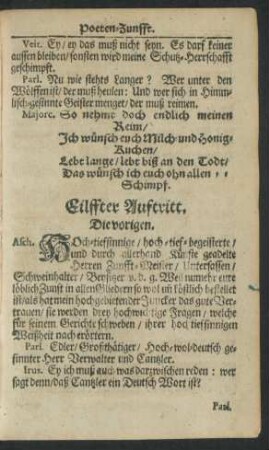 Poeten-Zunfft.
Veit. Ey/ ey das muß nicht seyn. Es darf keiner
aussen bleiben/ sonsten wird meine Schutz-Herrschafft
geschimpft.
Parl. Nu wie stehts Langer? Wer unter den
Wölffen ist/ der muß heulen: Und wer sich in Himm-
lisch-gesinnte Geister menget/ der muß reimen.
Majorc. So nehme doch endlich meinen
Reim/
Ich wünsch euch Milch und Honig-
Kuchen/
Lebt lange/ lebt biß an den Todt/
Das wünsch ich euch ohn allen - -
Schimpf.
Eilffter Auftritt.
Die vorigen.
Asch. HOch-tiefsinnige/ hoch-tief-begeisterte/
und durch allerhand Künste geadelte
Herren Zunfft-Meister/ Untersassen/
Schweinhalter/ Beysitzer v. g. Weil nunmehr eure
löblich Zunft in allen Gliedern so wol uñ köstlich bestellet
ist/ als hat mein hochgebietender Juncker das gute Ver-
trauen/ sie werden drey hochwichtige Fragen/ welche
für seinem Gerichte schweben/ ihrer hoch tiefsinnigen
Weißheit nach erörtern.
Parl. Edler/ Großthätiger/ Hoch-wol-deutsch ge-
sinnter Herr Verwalter und Cantzler.
Irus. Ey ich muß auch was darzwischen reden: wer
sagt denn/ daß Cantzler ein Deutsch Wort ist?
Parl.